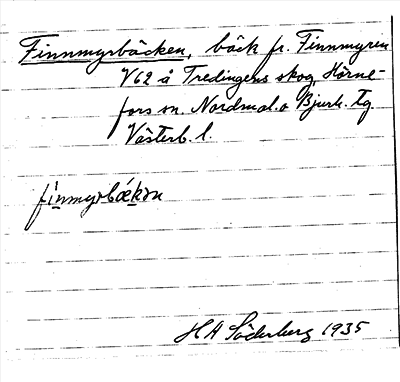 Finnmyrbäcken, bäck fr. Finnmyren
V62 å Tredingens skog, Hörne-
fors sn. Nordmal. o Bjurh. tg
Västerb. l.
finmyrbækən
HA Söderberg 1935